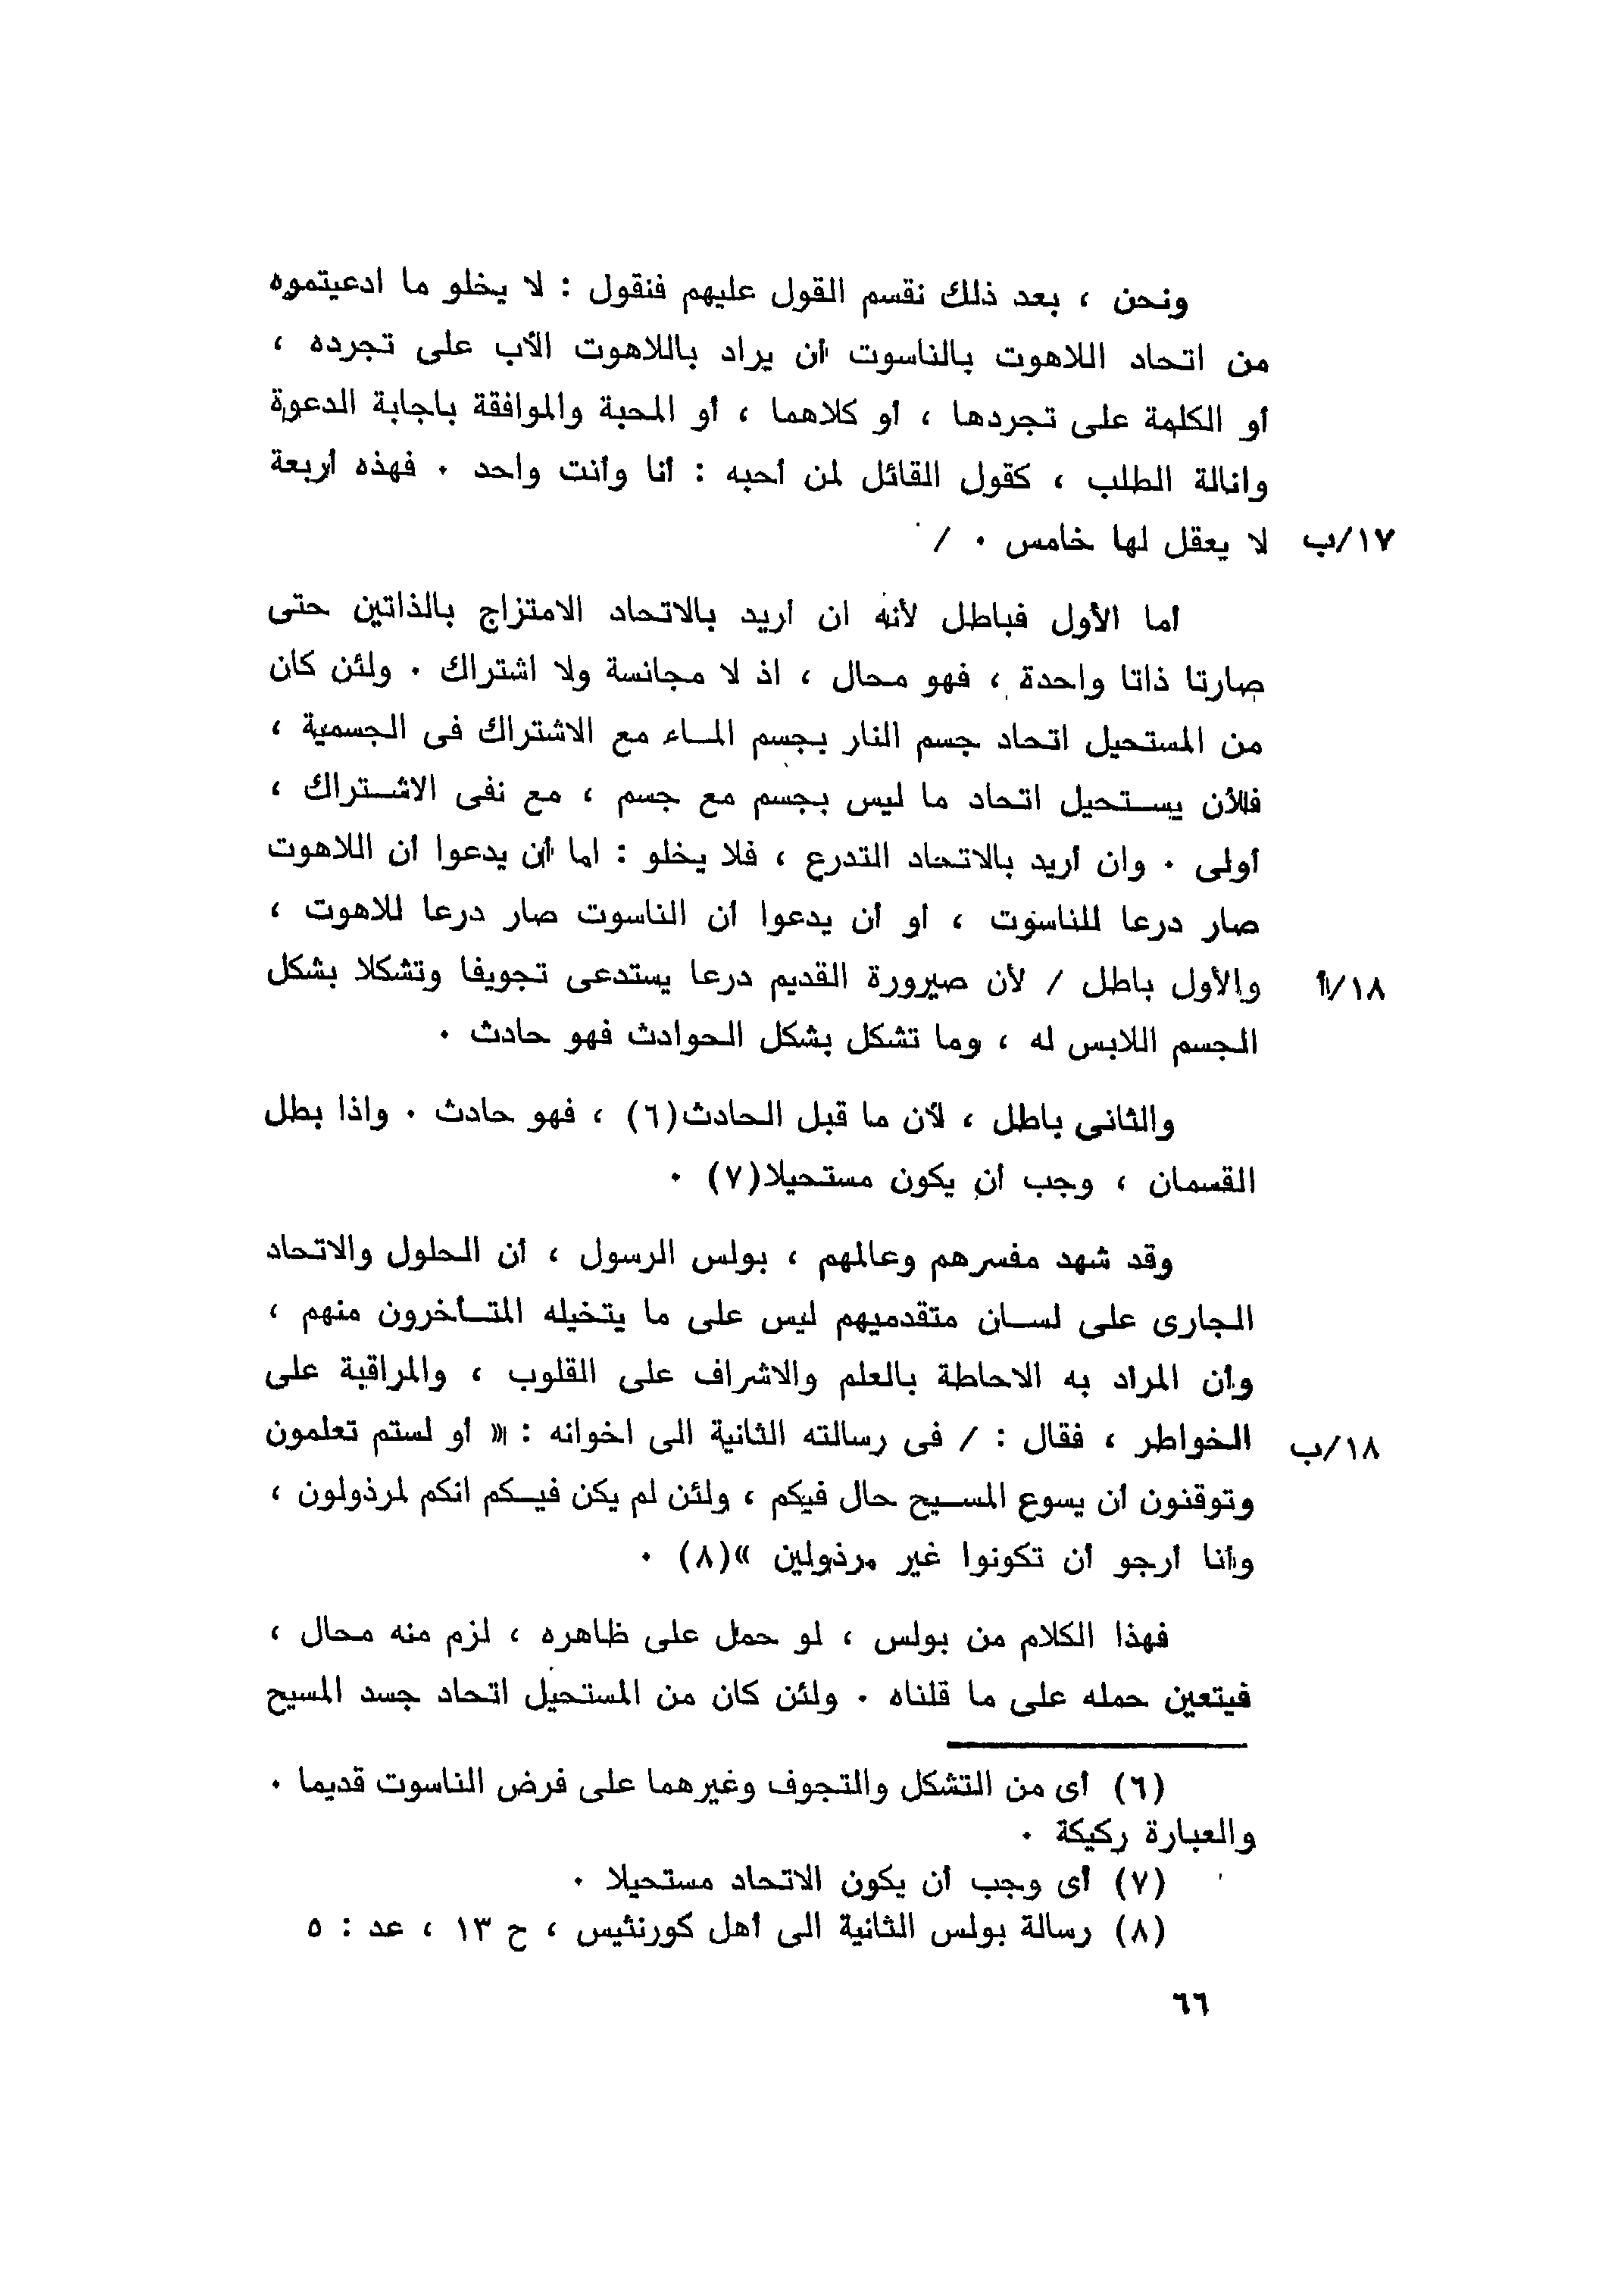 ونحن ، بعد ذلك نقسم القول عليهم فنقول : لا يخلو ما ادعيتموه
من اتحاد اللاهوت بالناسوت أن يراد باللاهوت الأب على تجرده ،
أو الكلمة على تجردها ، أو كلاهما ، أو المحبة والموافقة باجابة الدعوة
وانالة الطلب ، كقول القائل لمن أحبه : أنا وأنت واحد . فهذه أربعة
١٧/ب لا يعقل لها خامس . /
أما الأول فباطل لأنه ان أريد بالاتحاد الامتزاج بالذاتين حتى
صارتا ذاتا واحدة ، فهو محال ، اذ لا مجانسة ولا اشتراك . ولئن كان
من المستحيل اتحاد جسم النار بجسم المـاء مع الاشتراك فى الجسمية ،
فلأن يسـتحيل اتحاد ما ليس بجسم مع جسم ، مع نفى الاشـتراك ،
أولى . وان أريد بالاتحاد التدرع ، فلا يخلو : اما أن يدعوا أن اللاهوت
صار درعا للناسوت ، أو أن يدعوا أن الناسوت صار درعا للاهوت ،
١٨/أ والأول باطل / لأن صيرورة القديم درعا يستدعى تجويفا وتشكلا بشكل
الجسم اللابس له ، وما تشكل بشكل الحوادث فهو حادث .
والثانى باطل ، لأن ما قبل الحادث(٦) ، فهو حادث . واذا بطل
القسمان ، وجب أن يكون مستحيلا(٧) .
وقد شهد مفسرهم وعالمهم ، بولس الرسول ، أن الحلول والاتحاد
الجارى على لسـان متقدميهم ليس على ما يتخيله المتـأخرون منهم ،
وأن المراد به الاحاطة بالعلم والاشراف على القلوب ، والمراقبة على
١٨/ب الخواطر ، فقال : / فى رسالته الثانية الى اخوانه : « أو لستم تعلمون
وتوقنون أن يسوع المسـيح حال فيكم ، ولئن لم يكن فيـكم انكم لمرذولون ،
وأنا أرجو أن تكونوا غير مرذولين »(٨) .
فهذا الكلام من بولس ، لو حمل على ظاهره ، لزم منه محال ،
فيتعين حمله على ما قلناه . ولئن كان من المستحيل اتحاد جسد المسيح
(٦) أى من التشكل والتجوف وغيرهما على فرض الناسوت قديما .
والعبارة ركيكة .
(٧) أى وجب أن يكون الاتحاد مستحيلا .
(٨) رسالة بولس الثانية الى أهل كورنثيس ، ح ١٣ ، عد : ٥
٦٦